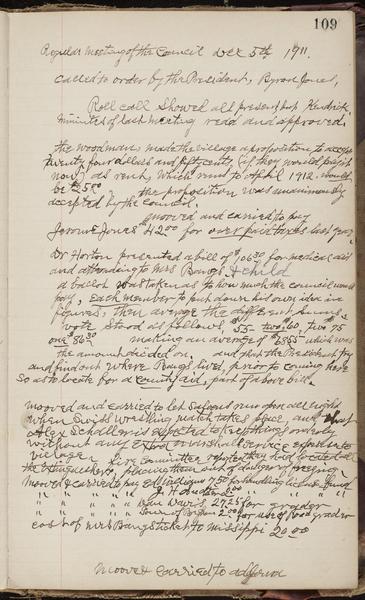 109
Regular Meeting of the Council Dec 5th 1911.
Called to order by the President, Byron Jones,
Roll call showed all present but Kendrick
minutes of last meeting read and approved.
the woodman, made the village a proposition to accept
twenty four dollars and fifty cents, (if they would pay it
now) as rent, which rent to April 1912. would
be the proposition was unanimously
accepted by the council.
moved and carried to pay
Jerome Jones $42 00 for over paid taxes last year.
Dr Horton presented a bill of $106 30 for medical aid
and attending to Mrs Bangs & child
a ballot was taken as to how much the council would
pay, each member to put down his own idea in
figures, then average the different sums.
vote stood as follows, $55- two 60, two 75
one 86 30 making an average of $68 55 which was
the amount decided on. and that the President try
and find out where Bangs lived, prior to coming here
so as to locate for a county aid, part of above bill.
moved and carried to let Saloons run open all night
when Swiss wrestling match takes place, and that
Alex Schadler is expected to keep things orderly
without any Extra marshall service expense to
village. fire committee reported they had located all
the Hungerford, placing them out of danger of freezing
Moved & carried to pay 7 50 for handling license fund
" " " " " J. H.
" " " " " 27 25 for grader
" " " " " 2 00 for use of road grader
cost of Mrs Bangs ticket to Mississippi 20.00
Moove & carried to adjourn